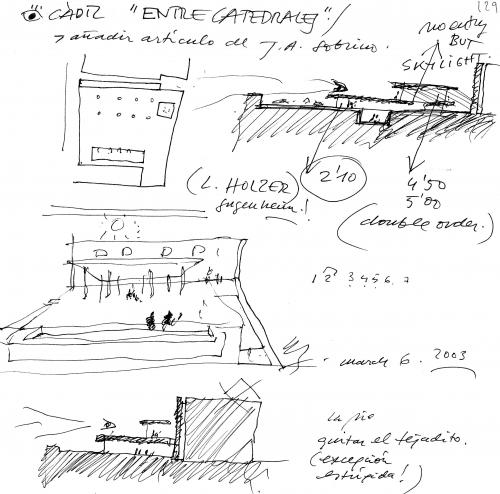 CÁDIZ "ENTRE CATEDRALES"!
129
→ añadir artículo de J. A. Sobrino.
no entry
BUT
SKYLIGHT.
(L. HOLZER)
2'10
4'50
5'00
(double order.)
1 2 3 4 5 6. 7
march 6. 2003
quitar el tejadito.
(excepción
estúpida!)